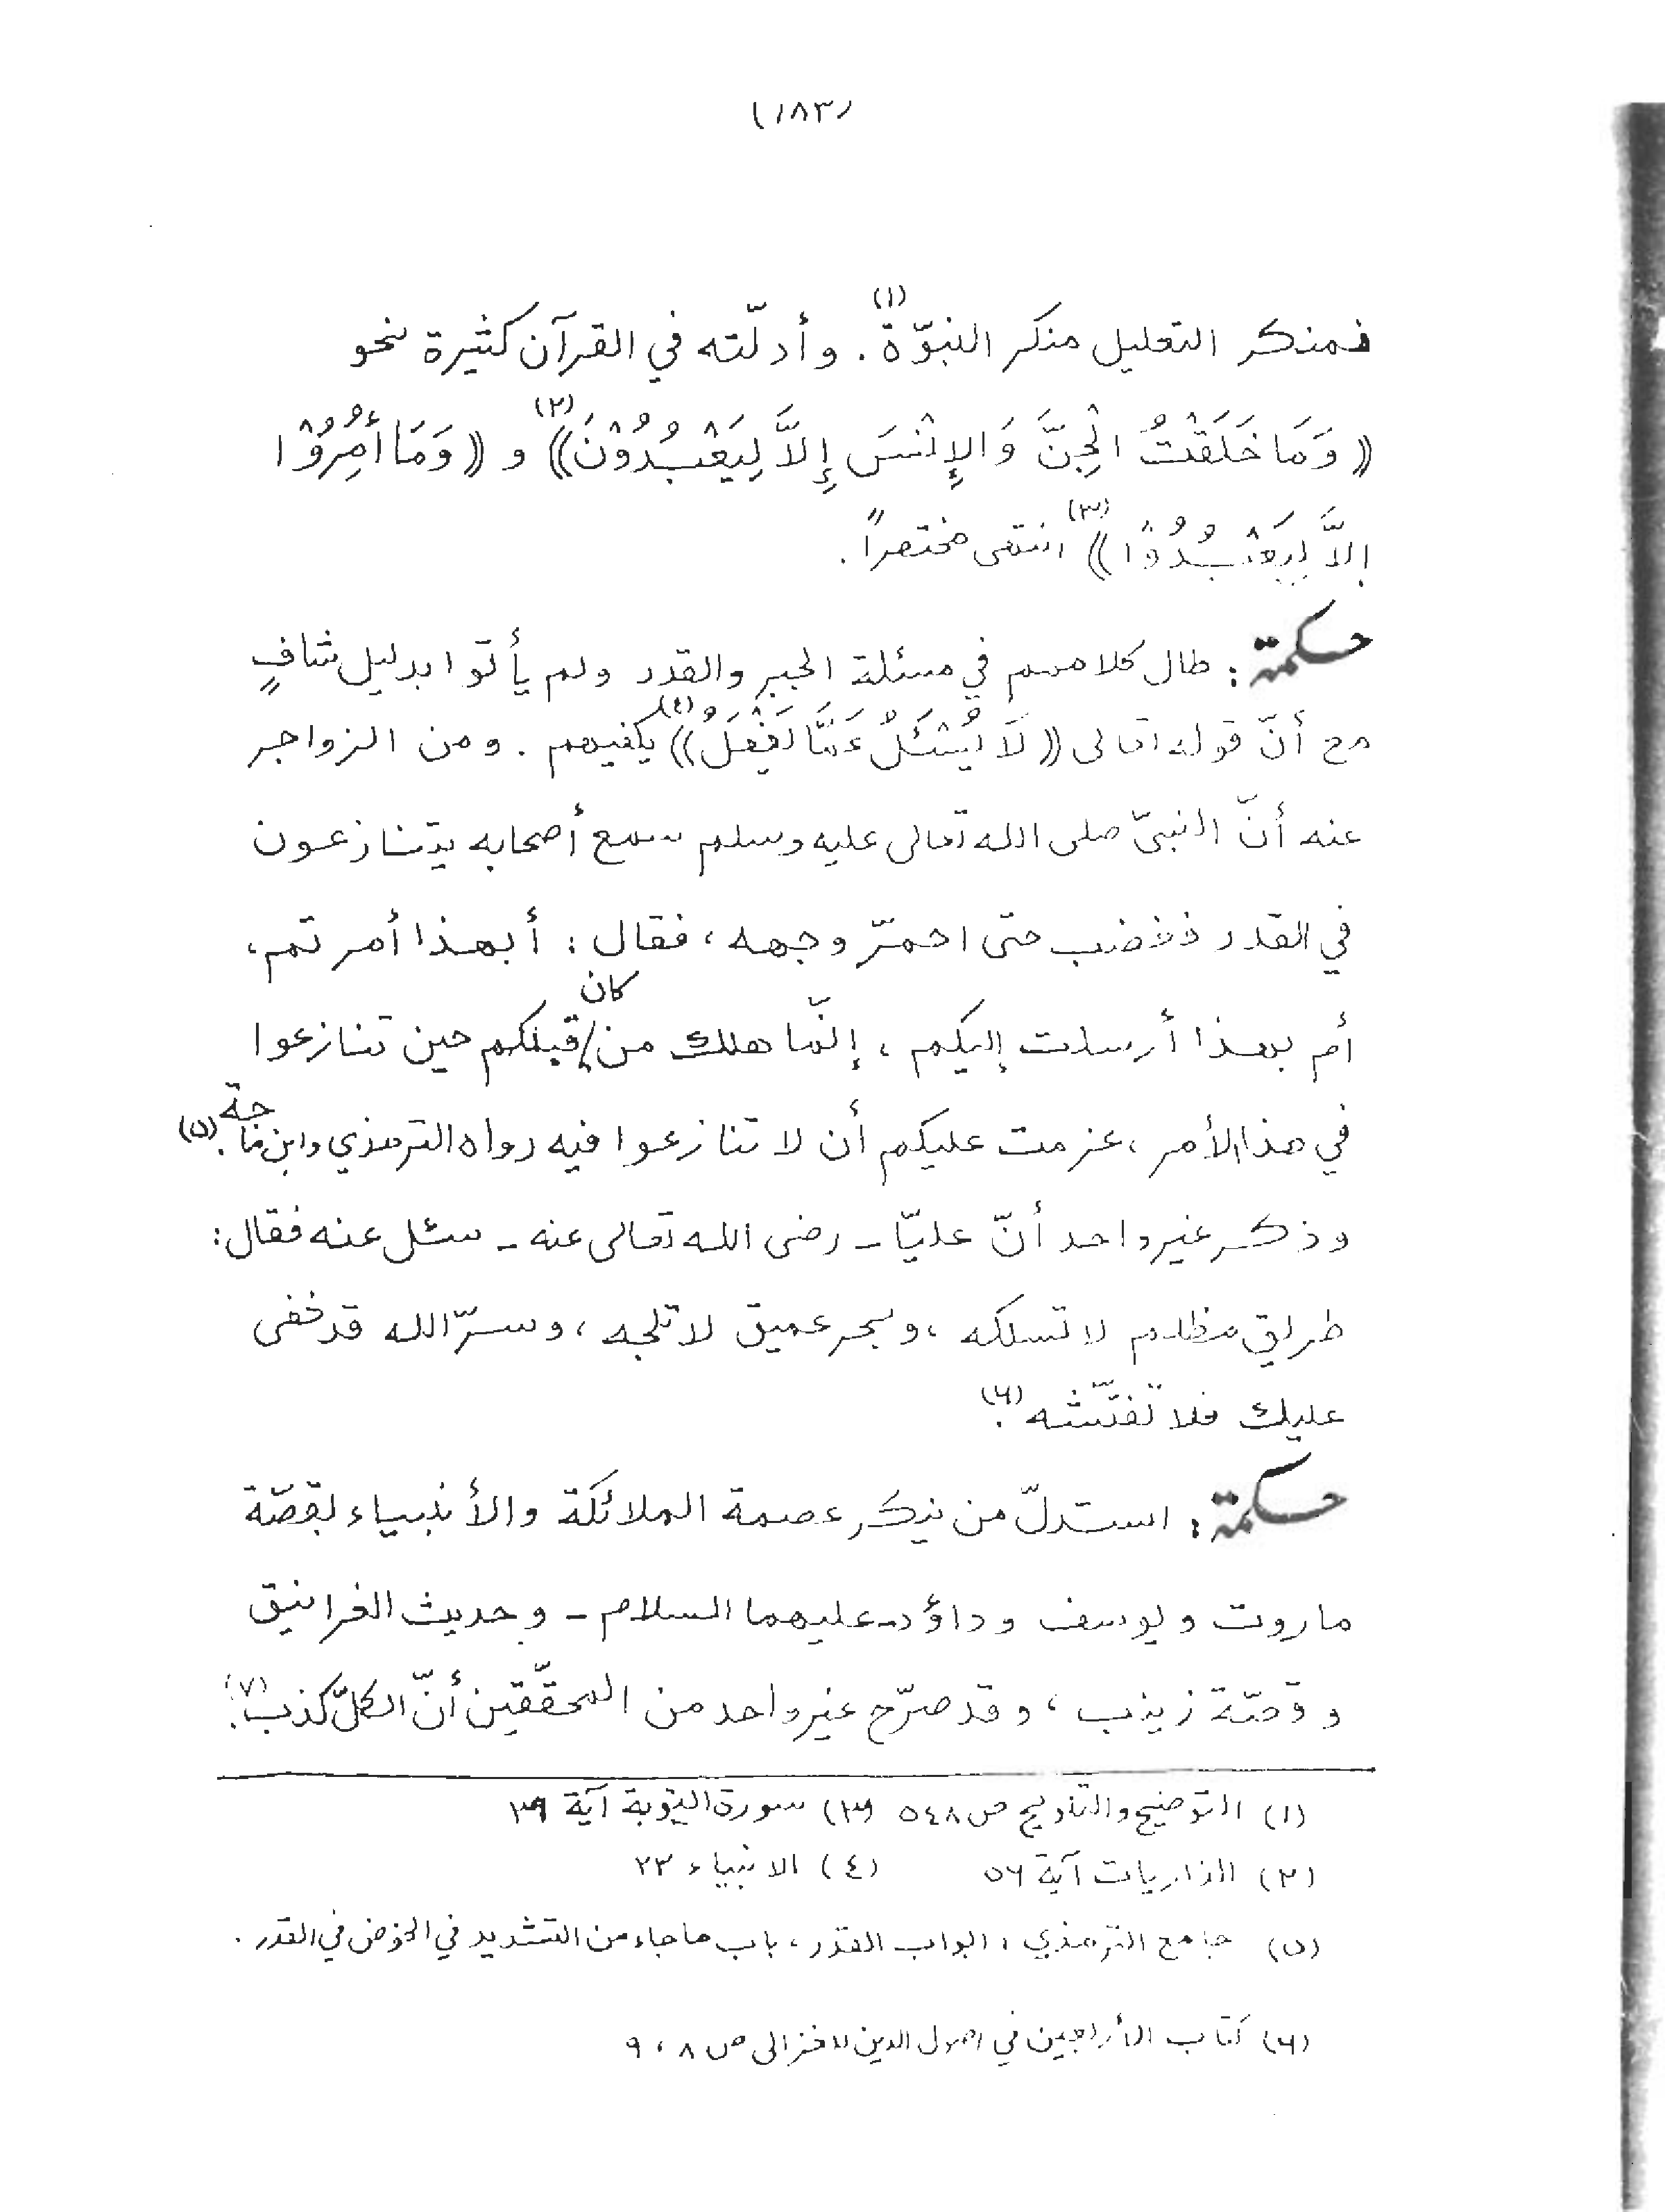 (١٨٣)
فمنكر التعليل منكر النبوّة(١). وأدلّته في القرآن كثيرة نحو
((وَمَا خَلَقْتُ الْجِنَّ وَالإِنْسَ إِلاَّ لِيَعْبُدُوْنَ))(٢) و ((وَمَا أُمِرُوْا
إلاَّ لِيَعْبُدُوْا))(٣) انتهى مختصراً.
حكمة: طال كلامهم في مسئلة الجبر والقدر ولم يأتوا بدليل شافٍ
مع أنّ قوله تعالى ((لَا يُسْئَلُ عَمَّا يَفْعَلُ))(٤) يكفيهم. ومن الزواجر
عنه أنّ النبيّ صلى الله تعالى عليه وسلم سمع أصحابه يتنازعون
في القدر فغضب حتى احمرّ وجهه، فقال: أبهذا أمرتم،
أم بهذا أرسلت إليكم، إنّما هلك من كان قبلكم حين تنازعوا
في هذا الأمر، عزمت عليكم أن لا تنازعوا فيه رواه الترمذي وابن ماجة.(٥)
وذكر غير واحد أنّ عليّا - رضى الله تعالى عنه - سئل عنه فقال:
طريق مظلم لا تسلكه، وبحر عميق لا تلجه، وسرّ الله قد خفى
عليك فلا تفتّشه.(٦)
حكمة: استدلّ من ينكر عصمة الملائكة والأنبياء بقصّة
ماروت ويوسف وداؤد - عليهما السلام - وحديث الغرانيق
وقصّة زينب، وقد صرّح غير واحد من المحقّقين أنّ الكلّ كذب.(٧)
(١) التوضيح والتلويح ص ٥٤٨ (٣) سورة التوبة آية ٣١
(٢) الذاريات آية ٥٦ (٤) الانبياء ٢٣
(٥) جامع الترمذي، ابواب القدر، باب ما جاء من التشديد في الخوض في القدر.
(٦) كتاب الأربعين في اصول الدين للغزالى ص ٨، ٩